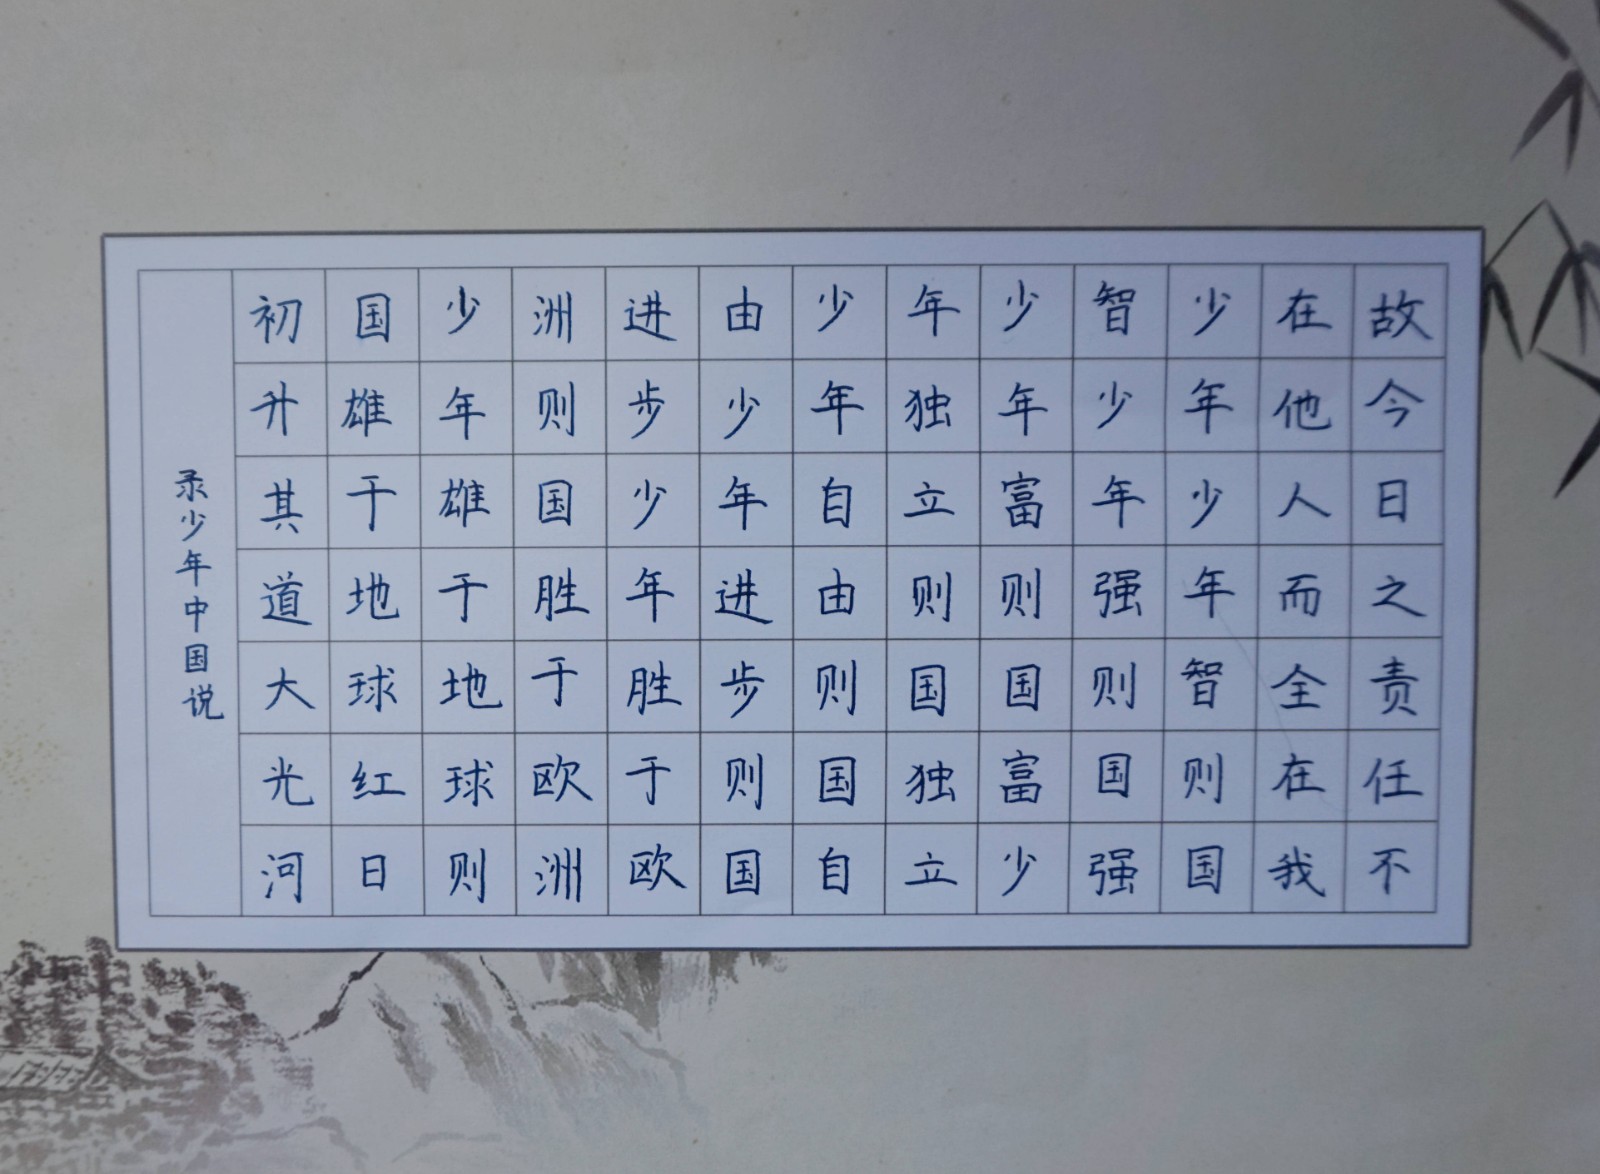 故今日之责任不
在他人而全在我
少年少年智则国
智少年强则国强
少年富则国富少
年独立则国独立
少年自由则国自
由少年进步则国
进步少年胜于欧
洲则国胜于欧洲
少年雄于地球则
国雄于地球红日
初升其道大光河
录少年中国说